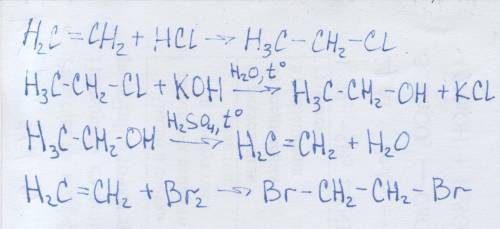 H₂C=CH₂ + HCl → H₃C-CH₂-Cl
H₃C-CH₂-Cl + KOH H₂O, t° → H₃C-CH₂-OH + KCl
H₃C-CH₂-OH H₂SO₄, t° → H₂C=CH₂ + H₂O
H₂C=CH₂ + Br₂ → Br-CH₂-CH₂-Br